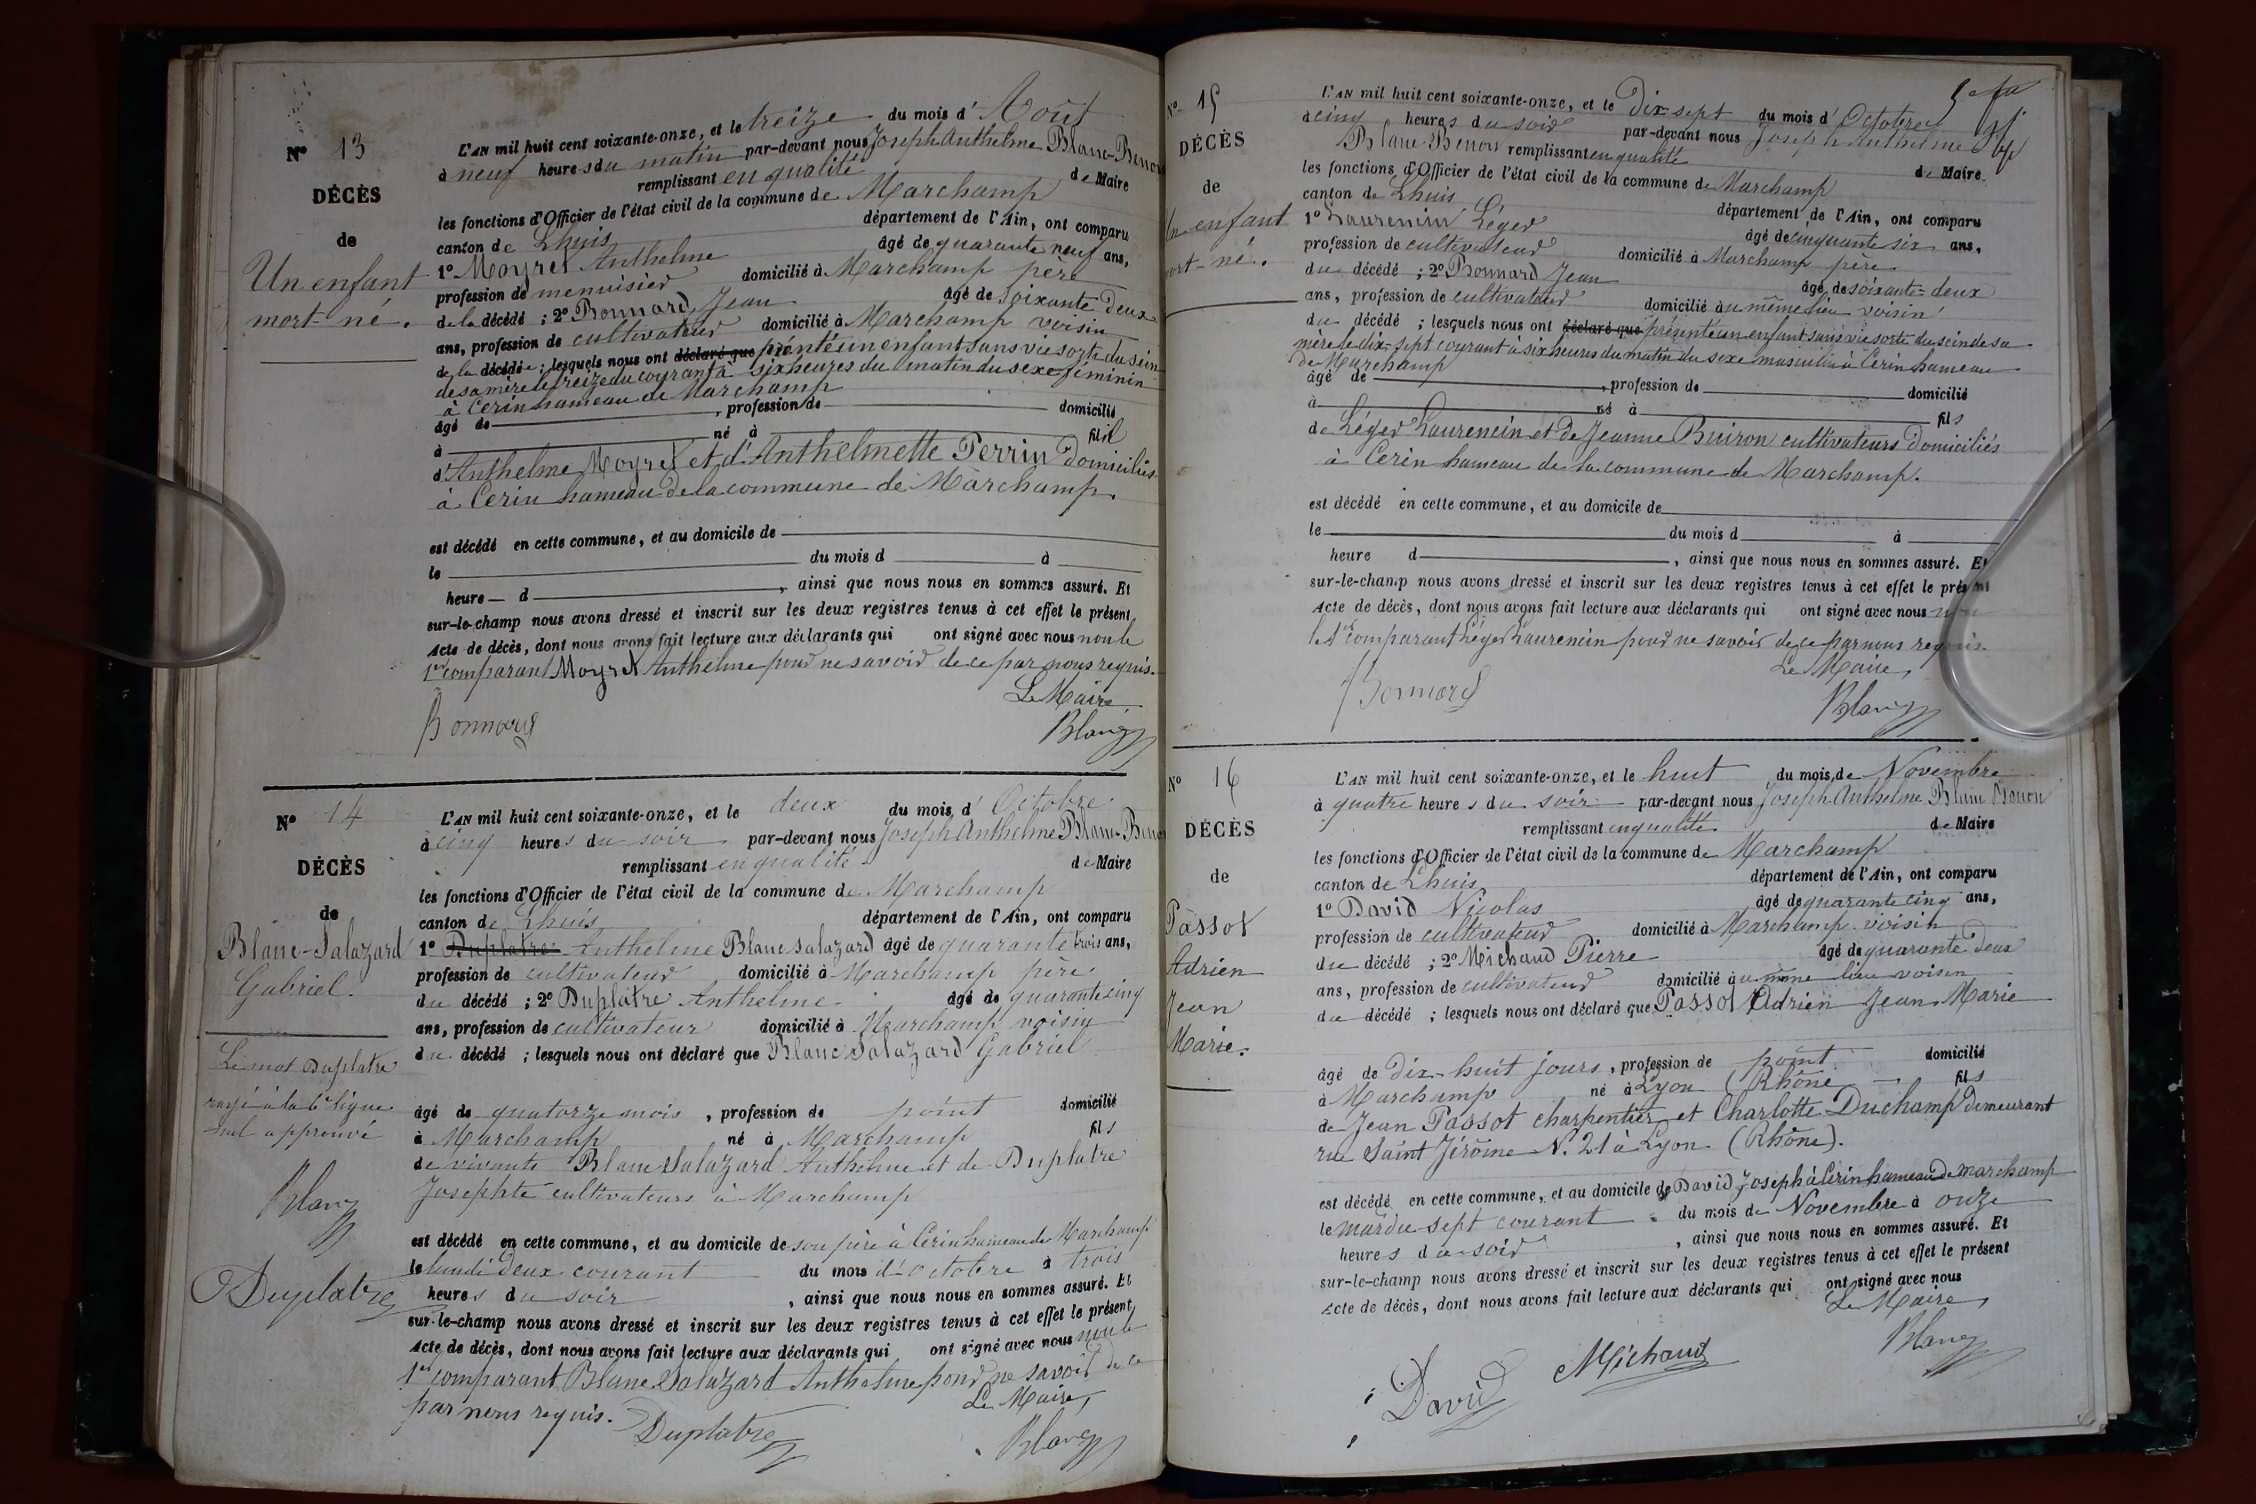 Nº 13
DÉCÈS
de
Un enfant
mort-né.
L'AN mil huit cent soixante-onze, et le treize du mois d'Août
à neuf heures du matin par-devant nous Joseph Anthelme Blanc-Benon
remplissant en qualité de Maire
les fonctions d'Officier de l'état civil de la commune de Marchamp
canton de Lhuis département de l'Ain, ont comparu
1º Moyret Anthelme âgé de quarante neuf ans,
profession de menuisier domicilié à Marchamp père
de la décédé ; 2º Bonnard Jean âgé de soixante deux
ans, profession de cultivateur domicilié à Marchamp voisin
de la décédée ; lesquels nous ont déclaré que présenté un enfant sans vie sorti du sein
de sa mère le treize du courant à six heures du matin du sexe féminin
à Cerin hameau de Marchamp
âgé de , profession de domicilié
à né à fil
d'Anthelme Moyret et d'Anthelmette Perrin domiciliés
à Cerin hameau de la commune de Marchamp.
est décédé en cette commune, et au domicile de
le du mois d à
heure d , ainsi que nous nous en sommes assuré. Et
sur-le-champ nous avons dressé et inscrit sur les deux registres tenus à cet effet le présent
Acte de décès, dont nous avons fait lecture aux déclarants qui ont signé avec nous non le
1er comparant Moyret Anthelme pour ne savoir de ce par nous requis.
Le Maire
Bonnard Blanc
Nº 14
DÉCÈS
de
Blanc-Salazard
Gabriel.
Le mot Duplatre
rayé à la 6e ligne
nul approuvé
Blanc
Duplatre
L'AN mil huit cent soixante-onze, et le deux du mois d'Octobre
à cinq heures du soir par-devant nous Joseph Anthelme Blanc-Benon
remplissant en qualité de Maire
les fonctions d'Officier de l'état civil de la commune de Marchamp
canton de Lhuis département de l'Ain, ont comparu
1º Duplatre Anthelme Blanc Salazard âgé de quarante trois ans,
profession de cultivateur domicilié à Marchamp père
du décédé ; 2º Duplatre Anthelme âgé de quarante cinq
ans, profession de cultivateur domicilié à Marchamp voisin
du décédé ; lesquels nous ont déclaré que Blanc Salazard Gabriel
âgé de quatorze mois , profession de point domicilié
à Marchamp né à Marchamp fils
de vivants Blanc Salazard Anthelme et de Duplatre
Josephte cultivateurs à Marchamp
est décédé en cette commune, et au domicile de son père à Cerin hameau de Marchamp
le lundi deux courant du mois d'octobre à trois
heures du soir , ainsi que nous nous en sommes assuré. Et
sur-le-champ nous avons dressé et inscrit sur les deux registres tenus à cet effet le présent
Acte de décès, dont nous avons fait lecture aux déclarants qui ont signé avec nous non le
1er comparant Blanc Salazard Anthelme pour ne savoir de ce
par nous requis. Le Maire,
Duplatre Blanc
Nº 15
DÉCÈS
de
Un enfant
mort-né.
L'AN mil huit cent soixante-onze, et le Dix sept du mois d'Octobre
à cinq heures du soir par-devant nous Joseph Anthelme
Blanc Benon remplissant en qualité de Maire
les fonctions d'Officier de l'état civil de la commune de Marchamp
canton de Lhuis département de l'Ain, ont comparu
1º Laurencin Léger âgé de cinquante six ans,
profession de cultivateur domicilié à Marchamp père
du décédé ; 2º Bonnard Jean âgé de soixante-deux
ans, profession de cultivateur domicilié au même lieu voisin
du décédé ; lesquels nous ont déclaré que présenté un enfant sans vie sorti du sein de sa
mère le dix-sept courant à six heures du matin du sexe masculin à Cerin hameau
de Marchamp
âgé de , profession de domicilié
à né à fils
de Léger Laurencin et de Jeanne Buiron cultivateurs domiciliés
à Cerin hameau de la commune de Marchamp.
est décédé en cette commune, et au domicile de
le du mois d à
heure d , ainsi que nous nous en sommes assuré. Et
sur-le-champ nous avons dressé et inscrit sur les deux registres tenus à cet effet le présent
Acte de décès, dont nous avons fait lecture aux déclarants qui ont signé avec nous non
le 1er comparant Léger Laurencin pour ne savoir de ce par nous requis.
Le Maire,
Bonnard Blanc
Nº 16
DÉCÈS
de
Passot
Adrien
Jean
Marie.
L'AN mil huit cent soixante-onze, et le huit du mois de Novembre
à quatre heures du soir par-devant nous Joseph Anthelme Blanc Benon
remplissant en qualité de Maire
les fonctions d'Officier de l'état civil de la commune de Marchamp
canton de Lhuis département de l'Ain, ont comparu
1º David Nicolas âgé de quarante cinq ans,
profession de cultivateur domicilié à Marchamp voisin
du décédé ; 2º Michaud Pierre âgé de quarante deux
ans, profession de cultivateur domicilié au même lieu voisin
du décédé ; lesquels nous ont déclaré que Passot Adrien Jean Marie
âgé de dix-huit jours , profession de point domicilié
à Marchamp né à Lyon (Rhône fils
de Jean Passot charpentier et Charlotte Duchamp demeurant
rue Saint Jérôme N. 21 à Lyon (Rhône).
est décédé en cette commune, et au domicile de David Joseph à Cerin hameau de Marchamp
le mardi sept courant du mois de Novembre à onze
heures du soir , ainsi que nous nous en sommes assuré. Et
sur-le-champ nous avons dressé et inscrit sur les deux registres tenus à cet effet le présent
Acte de décès, dont nous avons fait lecture aux déclarants qui ont signé avec nous
Le Maire,
David Michaud Blanc